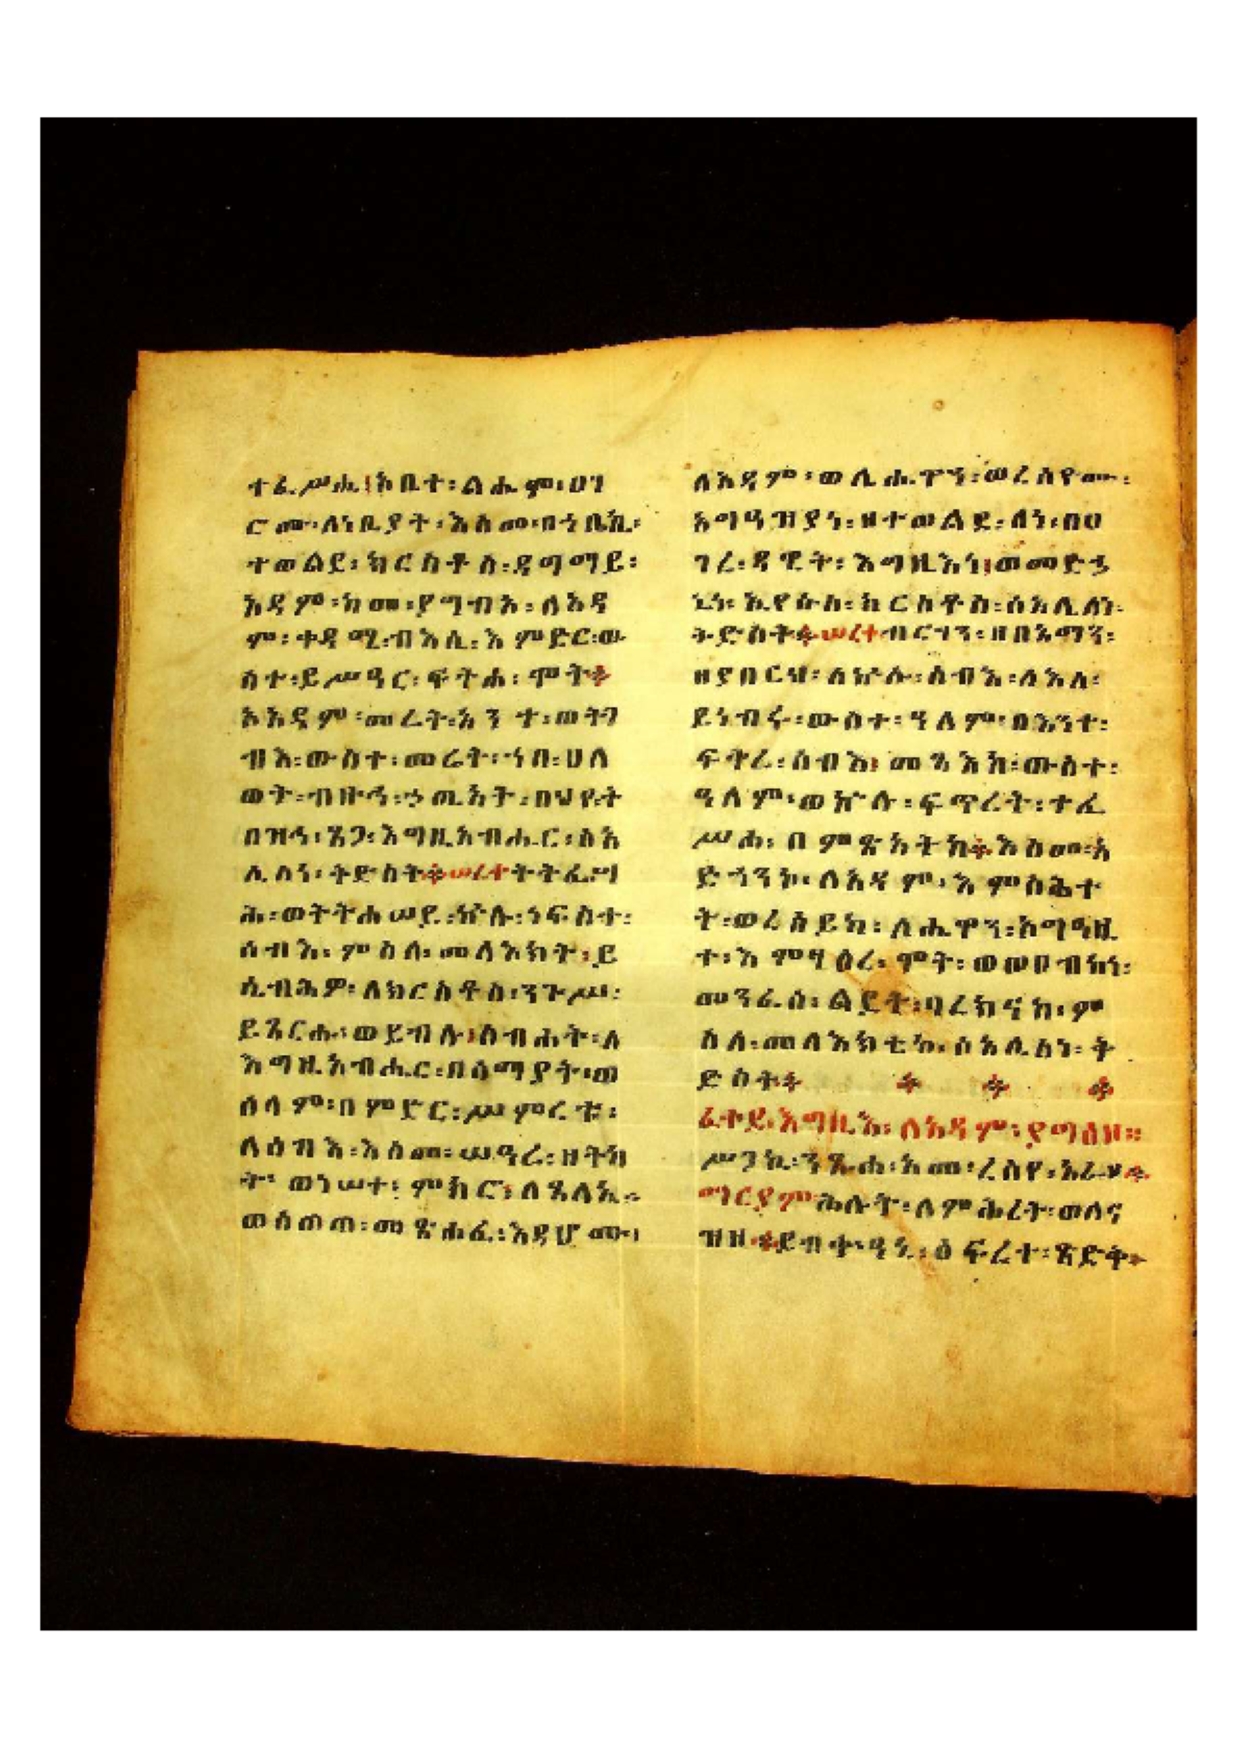 ተፈሥሒ፤ኦቤተ፡ልሔም፡ሀገ
ርሙ፡ለነቢያት፡እስመ፡በኀቤኪ፡
ተወልደ፡ክርስቶስ፡ዳግማይ፡
አዳም፡ከመ፡ያግብአ፡ለአዳ
ም፡ቀዳሚ፡ብእሲ፡እምድር፡ው
ስተ፡ይሥዓር፡ፍትሐ፡ሞት፨
ኦአዳም፡መሬት፡አንተ፡ወትገ
ብእ፡ውስተ፡መሬት፡ኀበ፡ሀለ
ወት፡ብዙኅ፡ኃጢአት፡በህየ፡ት
በዝኅ፡ጸጋ፡እግዚአብሔር፡ሰአ
ሊ፡ለነ፡ቅድስት፨ሠረተ፡ትትፌሣ
ሕ፡ወትትሐሠይ፡ኵሉ፡ነፍስተ፡
ሰብእ፡ምስለ፡መላእክት፡ይ
ሴብሕዎ፡ለክርስቶስ፡ንጉሥ፡
ይጸርሑ፡ወይብሉ፡ስብሐት፡ለ
እግዚአብሔር፡በሰማያት፡ወ
ሰላም፡በምድር፡ሥምረቱ፡
ለሰብእ፡እስመ፡ሠዓረ፡ዘትካ
ት፡ወነሠተ፡ምክር፡ለጸላኢ።
ወሰጠጠ፡መጽሐፈ፡እዳሆሙ፡
ለአዳም፡ወለሔዋን፡ወረሰዮሙ፡
አግዓዝያነ፡ዘተወልደ፡ለነ፡በሀ
ገረ፡ዳዊት፡እግዚእነ፡ወመድኃ
ኒነ፡ኢየሱስ፡ክርስቶስ፡ሰአሊ፡ለነ፡
ቅድስት፨ሠረተ፡ብርሃን፡ዘበአማን፡
ዘያበርህ፡ለኵሉ፡ሰብእ፡ለእለ፡
ይነብሩ፡ውስተ፡ዓለም፡በእንተ፡
ፍቅረ፡ሰብእ፡መጻእከ፡ውስተ፡
ዓለም፡ወኵሉ፡ፍጥረት፡ተፈ
ሥሐ፡በምጽአትከ፨እስመ፡አ
ድኀንኮ፡ለአዳም፡እምስሕተ
ት፡ወረሰይካ፡ለሔዋን፡አግዓዚ
ተ፡እምፃዕረ፡ሞት፡ወወሀብከነ፡
መንፈሰ፡ልደት፡ባረክናከ፡ም
ስለ፡መላእክቲከ፡ሰአሊ፡ለነ፡ቅ
ድስት፨ ፨ ፨ ፨
ፈተየ፡እግዚእ፡ለአዳም፡ያግዕዞ።
ማርያም፡ሕሉት፡ለምሕረት፡ወለና